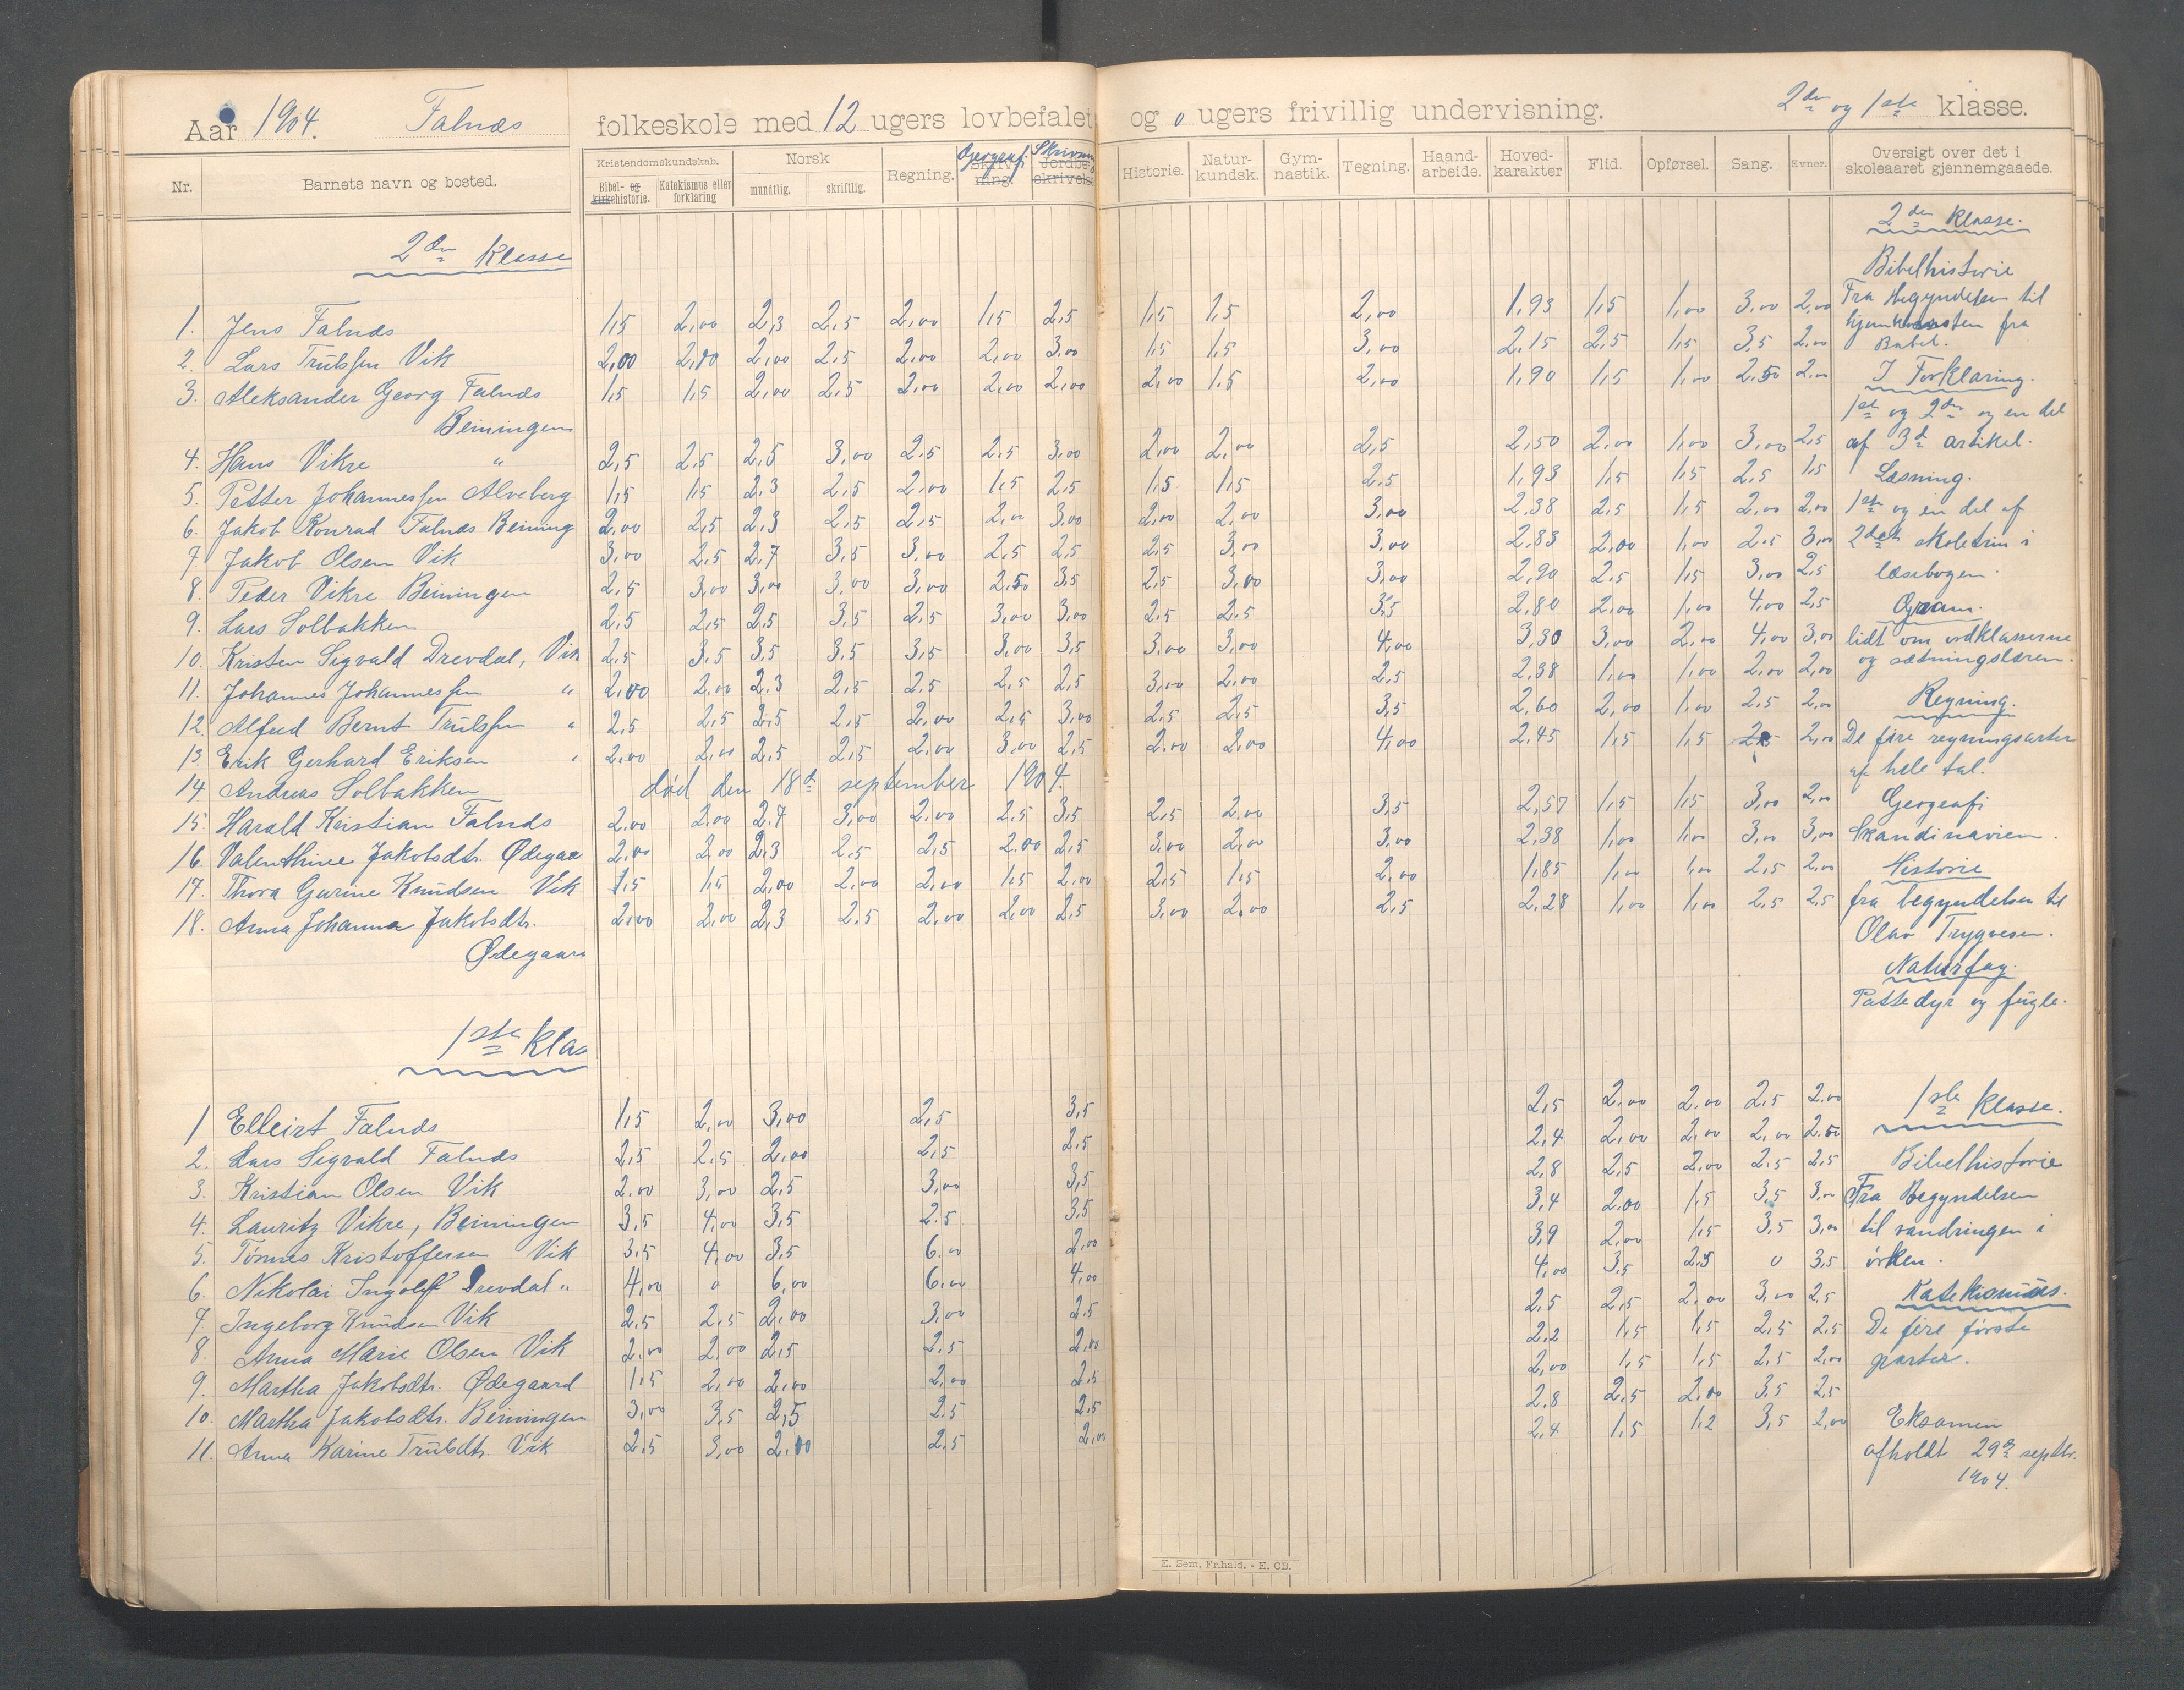 Aar 1904. Falnæs folkeskole med 12 ugers lovbefalet og 0 ugers frivillig undervisning. 2den og 1ste klasse.
Nr. Barnets navn og bosted. Kristendomskundskab. Bibel- og kirkehistorie. Katekismus eller forklaring Norsk mundtlig. skriftlig. Regning. Skrivning. Geografi Jordbeskrivelse Skrivning Historie. Naturkundsk. Gymnastik. Tegning. Haandarbeide. Hovedkarakter Flid. Opførsel. Sang. Evner. Oversigt over det i skoleaaret gjennemgaaede.
2den Klasse
1. Jens Falnæs 1,5 2,00 2,3 2,5 2,00 1,5 2,5 1,5 1,5 2,00 1,93 1,5 1,00 3,00 2,00
2. Lars Trulssen Vik 2,00 2,00 2,00 2,5 2,00 2,00 3,00 1,5 1,5 3,00 2,15 2,5 1,5 3,5 2,00
3. Aleksander Georg Falnæs 1,5 1,5 2,00 2,5 2,00 2,00 2,00 2,00 1,5 2,00 1,90 1,5 1,00 2,50 2,00
Beiningen
4. Hans Vikre " 2,5 2,5 2,5 3,00 2,5 2,5 3,00 2,00 2,00 2,5 2,50 2,00 1,00 3,00 2,5
5. Petter Johannessen Alveberg 1,5 1,5 2,3 2,5 2,00 1,5 2,5 1,5 1,5 2,5 1,93 1,5 1,5 2,5 1,5
6. Jakob Konrad Falnæs Beining 2,00 2,5 2,3 2,5 2,5 2,00 3,00 2,00 2,00 3,00 2,38 2,5 1,5 2,00 2,00
7. Jakob Olsen Vik 3,00 2,5 2,7 3,5 3,00 2,5 2,5 2,5 3,00 3,00 2,83 2,00 1,00 2,5 3,00
8. Peder Vikre Beiningen 2,5 3,00 3,00 3,00 3,00 2,50 3,5 2,5 3,00 3,00 2,90 2,5 1,5 3,00 2,5
9. Lars Solbakken 2,5 2,5 2,5 3,5 2,5 3,00 3,00 2,5 2,5 3,5 2,80 2,00 1,00 4,00 2,5
10. Kristen Sigvald Drevdal, Vik 2,5 3,5 3,5 3,5 3,5 3,00 3,5 3,00 3,00 4,00 3,30 3,00 2,00 4,00 3,00
11. Johannes Johannessen " 2,00 2,00 2,3 2,5 2,5 2,5 2,5 3,00 2,00 2,5 2,38 1,00 1,00 2,00 2,00
12. Alfred Bernt Trulssen " 2,5 2,5 2,5 2,5 2,00 2,5 3,00 2,5 2,5 3,5 2,60 2,00 1,00 2,5 2,00
13. Erik Gerhard Eriksen " 2,00 2,00 2,5 2,5 2,00 3,00 2,5 2,00 2,00 4,00 2,45 1,5 1,5 2,5 2,00
14. Andreas Solbakken død den 18de september 1904.
15. Harald Kristian Falnæs 2,00 2,00 2,7 3,00 2,00 2,5 3,5 2,5 2,00 3,5 2,57 1,5 1,5 3,00 2,00
16. Valenthine Jakobsdtr. Ødegaa 2,00 2,00 2,3 2,5 2,5 2,00 2,5 3,00 2,00 3,00 2,38 1,00 1,00 3,00 3,00
17. Thora Gurine Knudsen Vik 1,5 1,5 2,00 2,00 2,00 1,5 2,00 2,5 1,5 2,00 1,85 1,00 1,00 2,5 2,00
18. Anna Johanna Jakobsdtr. 2,00 2,00 2,3 2,5 2,00 2,00 2,5 3,00 2,00 2,5 2,28 1,00 1,00 2,5 2,5
Ødegaard
1ste Klas
1 Elleirt Falnæs 1,5 2,00 3,00 2,5 3,5 2,5 2,00 2,00 2,5 2,00
2. Lars Sigvald Falnæs 2,5 2,5 2,00 2,5 2,5 2,4 2,00 2,00 2,00 2,50
3. Kristian Olsen Vik 2,00 3,00 2,5 3,00 3,5 2,8 2,5 2,00 2,5 2,5
4. Lauritz Vikre, Beiningen 3,5 4,00 3,5 2,5 3,5 3,4 2,00 1,5 3,5 3,00
5. Tønnes Kristoffersen Vik 3,5 4,00 3,5 6,00 2,00 3,9 2,00 1,5 3,5 3,00
6. Nikolai Ingolf Drevdal " 4,00 0 6,00 6,00 4,00 4,00 3,5 2,5 0 3,5
7. Ingeborg Knudsen Vik 2,5 2,5 2,00 3,00 2,5 2,5 2,5 2,00 3,00 2,5
8. Anna Marie Olsen Vik 2,00 2,00 2,5 2,5 2,00 2,2 1,5 1,5 2,5 2,5
9. Martha Jakobsdtr. Ødegaard 1,5 2,00 2,00 2,00 2,5 2,00 1,5 1,5 2,5 2,00
10. Martha Jakobsdtr. Beiningen 3,00 3,5 2,5 2,5 2,5 2,8 2,5 2,00 3,5 2,5
11. Anna Karine Trulsdtr. Vik 2,5 3,00 2,00 2,5 2,00 2,4 1,5 1,2 3,5 2,00
2den Klasse.
Bibelhistorie
Fra Begyndelsen til
hjemkomsten fra
Babel.
I Forklaring.
1ste og 2den og en del
af 3die artikel.
Læsning.
1ste og en del af
2det skoletrin i
læsebogen.
Gram.
lidt om ordklasserne
og sætningslæren.
Regning.
De fire regningsarter
af hele tal.
Geografi
Skandinavien.
Historie
fra begyndelsen til
Olav Trygvesen.
Naturfag.
Pattedyr og fugle.
1ste Klasse.
Bibelhistorie
Fra Begyndelsen
til vandringen i
ørken.
Katekismus.
De fire første
parter.
Eksamen
afholdt 29de septbr.
1904.
E. Sem, Fr.hald. - E. CB.